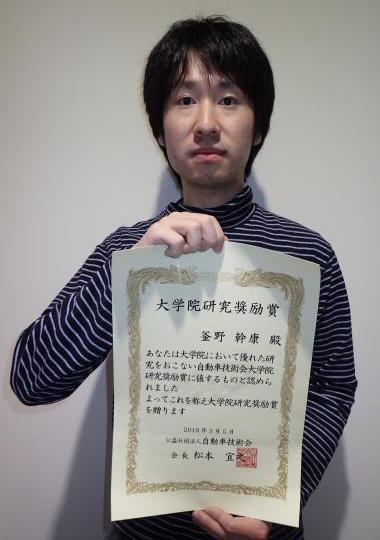 大学院研究奨励賞
釜野 幹康 殿
あなたは大学院において優れた研
究をおこない自動車技術会大学院
研究奨励賞に値するものと認めら
れました
よってこれを称え大学院研究奨励賞
を贈ります
2018年3月5日
公益社団法人自動車技術会
会長 松本 宜之